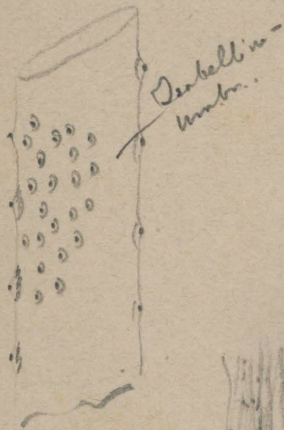 Isabellin-
umbr.